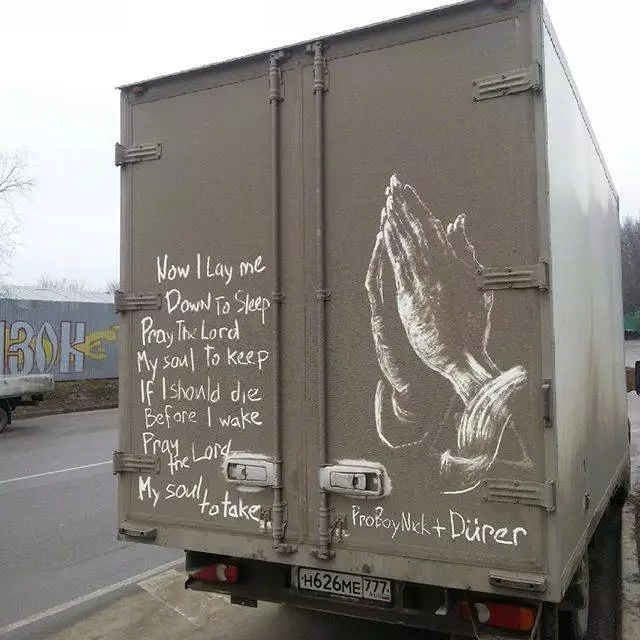 Now I Lay me
Down To Sleep
Pray The Lord
My soul to keep
If I should die
Before I wake
Pray
the Lord
My soul
to take...
ProBoyNick + Dürer
Н626МЕ 777
RUS
ИЗОН